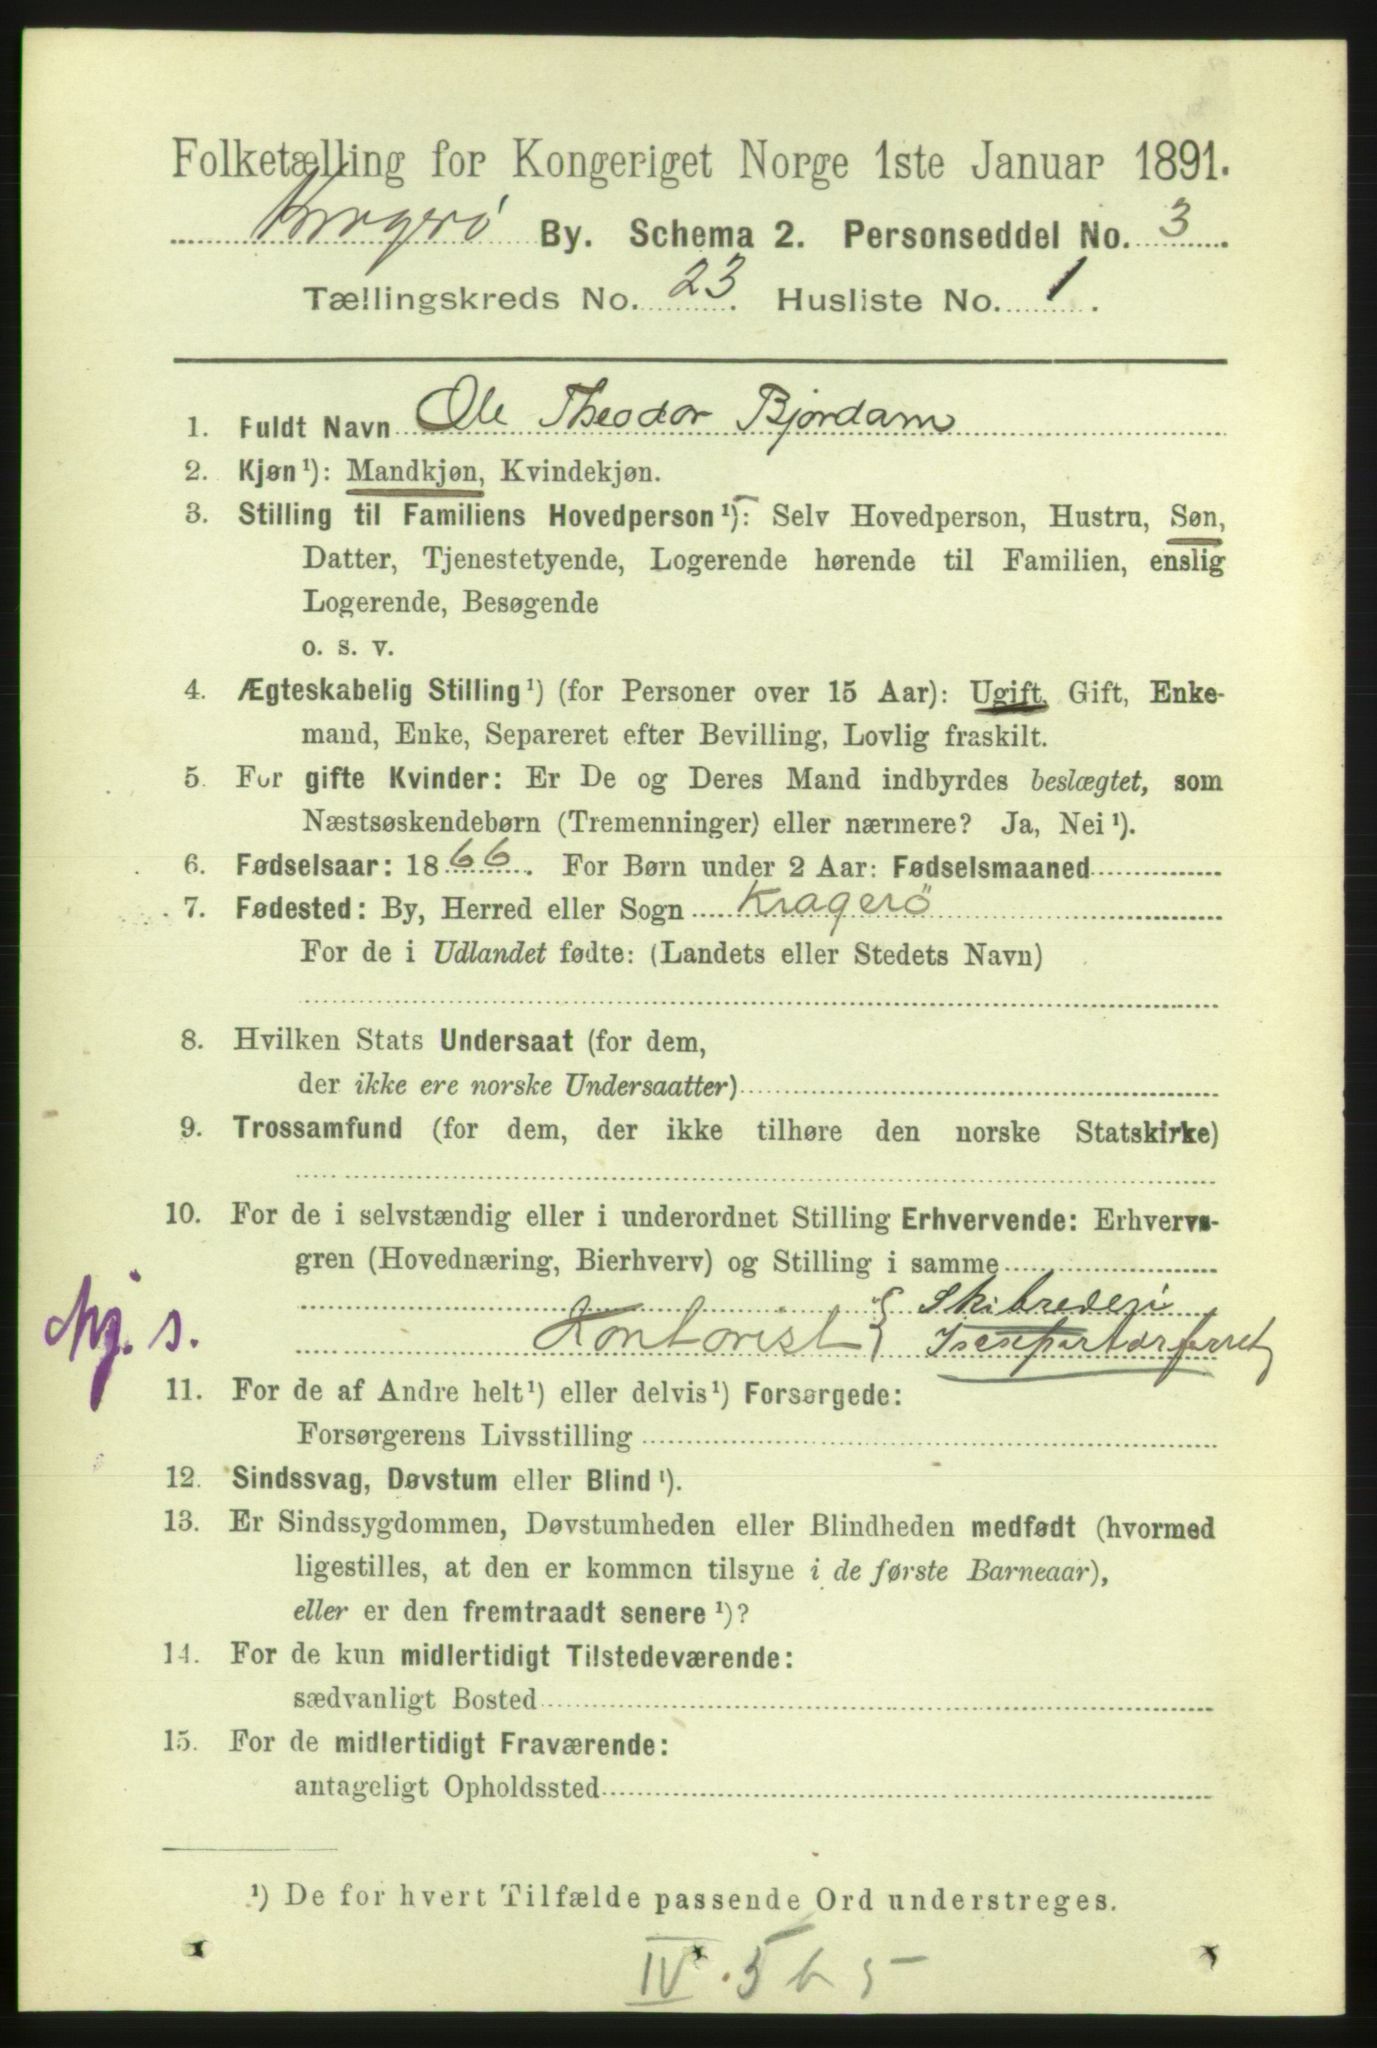 Folketælling for Kongeriget Norge 1ste Januar 1891.
Kragerø By. Schema 2. Personseddel No. 3.
Tællingskreds No. 23. Husliste No. 1.
1. Fuldt Navn Ole Theodor Bjordam
2. Kjøn ¹): Mandkjøn, Kvindekjøn.
3. Stilling til Familiens Hovedperson ¹): Selv Hovedperson, Hustru, Søn,
Datter, Tjenestetyende, Logerende hørende til Familien, enslig
Logerende, Besøgende
o. s. v.
4. Ægteskabelig Stilling ¹) (for Personer over 15 Aar): Ugift, Gift, Enke-
mand, Enke, Separeret efter Bevilling, Lovlig fraskilt.
5. For gifte Kvinder: Er De og Deres Mand indbyrdes beslægtet, som
Næstsøskendebørn (Tremenninger) eller nærmere? Ja, Nei ¹).
6. Fødselsaar: 1866. For Børn under 2 Aar: Fødselsmaaned
7. Fødested: By, Herred eller Sogn Kragerö
For de i Udlandet fødte: (Landets eller Stedets Navn)
8. Hvilken Stats Undersaat (for dem,
der ikke ere norske Undersaatter)
9. Trossamfund (for dem, der ikke tilhøre den norske Statskirke)
10. For de i selvstændig eller i underordnet Stilling Erhvervende: Erhvervs-
gren (Hovednæring, Bierhverv) og Stilling i samme
Skibrederi
Kontorist { Isexportørforret
11. For de af Andre helt ¹) eller delvis ¹) Forsørgede:
Forsørgerens Livsstilling
12. Sindssvag, Døvstum eller Blind ¹).
13. Er Sindssygdommen, Døvstumheden eller Blindheden medfødt (hvormed
ligestilles, at den er kommen tilsyne i de første Barneaar),
eller er den fremtraadt senere ¹)?
14. For de kun midlertidigt Tilstedeværende:
sædvanligt Bosted
15. For de midlertidigt Fraværende:
antageligt Opholdssted
¹) De for hvert Tilfælde passende Ord understreges.
IV . 5 b 5